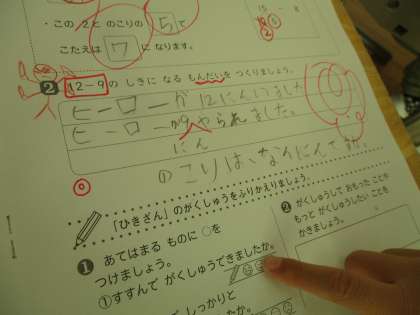 ・この 2と のこりの 5と
こたえは 7 に なります。
2 12-9の しきに なる もんだいを つくりましょう。
ヒーローが 12にんいました
ヒーローが9 やられました。
にん
のこりは、なんにんですか。
「ひきざん」のがくしゅうをふりかえりましょう。
1 あてはまる ものに ○を
つけましょう。
①すすんで がくしゅうできましたか。
しっかりと
2 がくしゅうして おもった ことや
もっと がくしゅうしたい ことを
かきましょう。